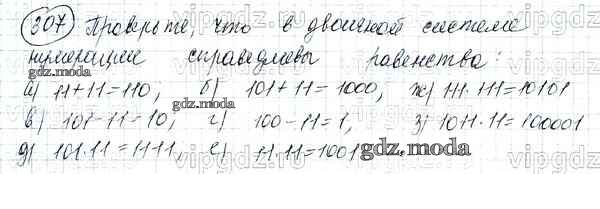 307 Проверьте, что в двоичной системе
нумерации справедливы равенства:
а) 11+11=110, б) 101+11=1000, ж) 111·111=10101
в) 101-11=10, г) 100-11=1, з) 1011·11=100001
д) 101·11=1111, е) 11·11=1001
gdz.moda
gdz.moda
gdz.moda
vipgdz.ru